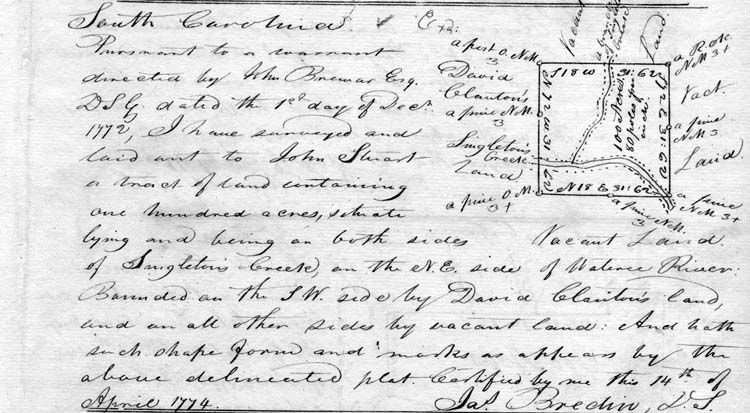 South Carolina.
Pursuant to a warrant
directed by John Brewar Esq.
D.S.G. dated the 1st day of Decr.
1772, I have surveyed and
laid out to John Stuart
a tract of land containing
one hundred acres, situate
lying and being on both sides
of Singleton's Creek, on the N.E. side of Wateree River:
Bounded on the S.W. side by David Clanton's land,
and on all other sides by vacant land: And hath
such shape form and marks as appears by the
above delineated plat. Certified by me this 14th of
April 1774. Jas. Bredin, D.S.
Vacant
Land
a post O.N.M.
David
Clanton's
a pine N.M.
3
Singleton's
Creek
Land
a pine O.M.
3+
S 18 W 31:62
100 Acres
80 pla
inch
N 18 E 31:62
N.M. 3+
Vact.
a pine
N.M. 3
Land
a pine
N.M. 3+
a pine N.M.
3
Vacant Land